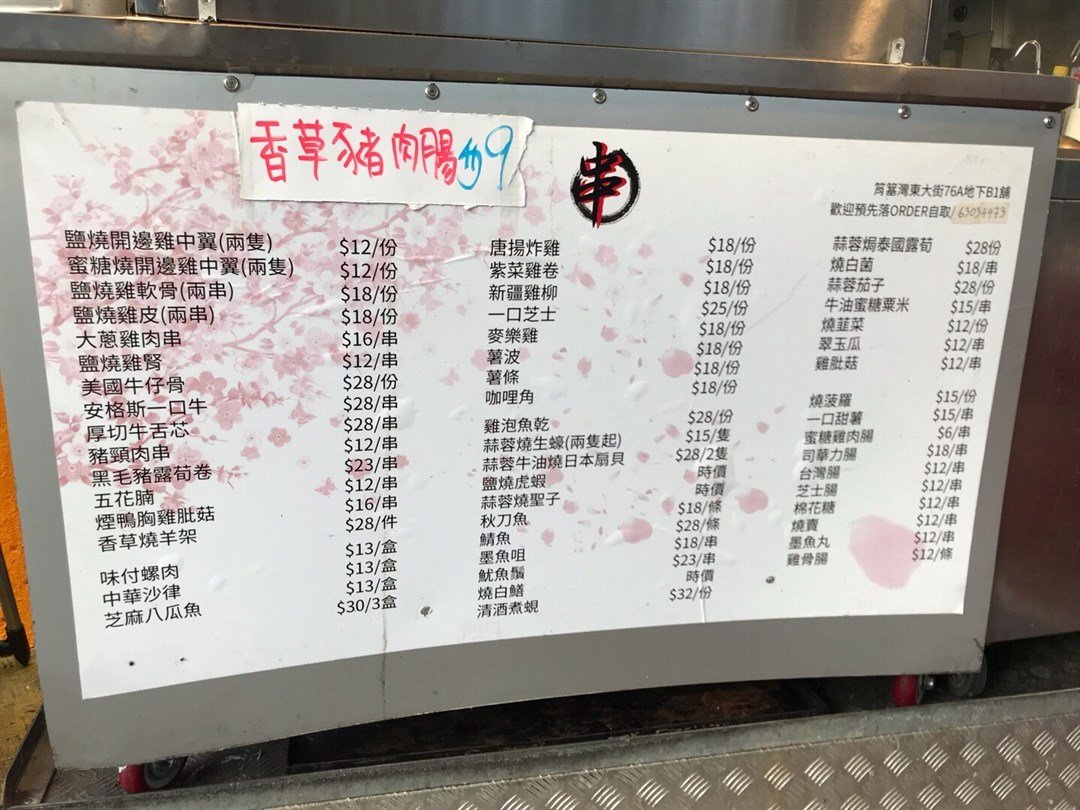 香草豬肉腸$9
串
筲箕灣東大街76A地下B1舖
歡迎預先落ORDER自取/
鹽燒開邊雞中翼(兩隻) $12/份
蜜糖燒開邊雞中翼(兩隻) $12/份
鹽燒雞軟骨(兩串) $18/份
鹽燒雞皮(兩串) $18/份
大蔥雞肉串 $16/串
鹽燒雞腎 $12/串
美國牛仔骨 $28/份
安格斯一口牛 $28/串
厚切牛舌芯 $28/串
豬頸肉串 $12/串
黑毛豬露荀卷 $23/串
五花腩 $12/串
煙鴨胸雞肶菇 $16/串
香草燒羊架 $28/件
味付螺肉 $13/盒
中華沙律 $13/盒
芝麻八瓜魚 $13/盒
$30/3盒
唐揚炸雞 $18/份
紫菜雞卷 $18/份
新疆雞柳 $18/份
一口芝士 $25/份
麥樂雞 $18/份
薯波 $18/份
薯條 $18/份
咖哩角 $18/份
雞泡魚乾 $28/份
蒜蓉燒生蠔(兩隻起) $15/隻
蒜蓉牛油燒日本扇貝 $28/2隻
鹽燒虎蝦 時價
蒜蓉燒聖子 時價
秋刀魚 $18/條
鯖魚 $28/條
墨魚咀 $18/串
魷魚鬚 $23/串
燒白鱔 時價
清酒煮蜆 $32/份
蒜蓉焗泰國露荀 $28份
燒白菌 $18/串
蒜蓉茄子 $28/份
牛油蜜糖粟米 $15/串
燒韮菜 $12/份
翠玉瓜 $12/串
雞肶菇 $12/串
燒菠蘿 $15/份
一口甜薯 $15/串
蜜糖雞肉腸 $6/串
司華力腸 $18/串
台灣腸 $12/串
芝士腸 $12/串
棉花糖 $12/串
燒賣 $12/串
墨魚丸 $12/串
雞骨腸 $12/條